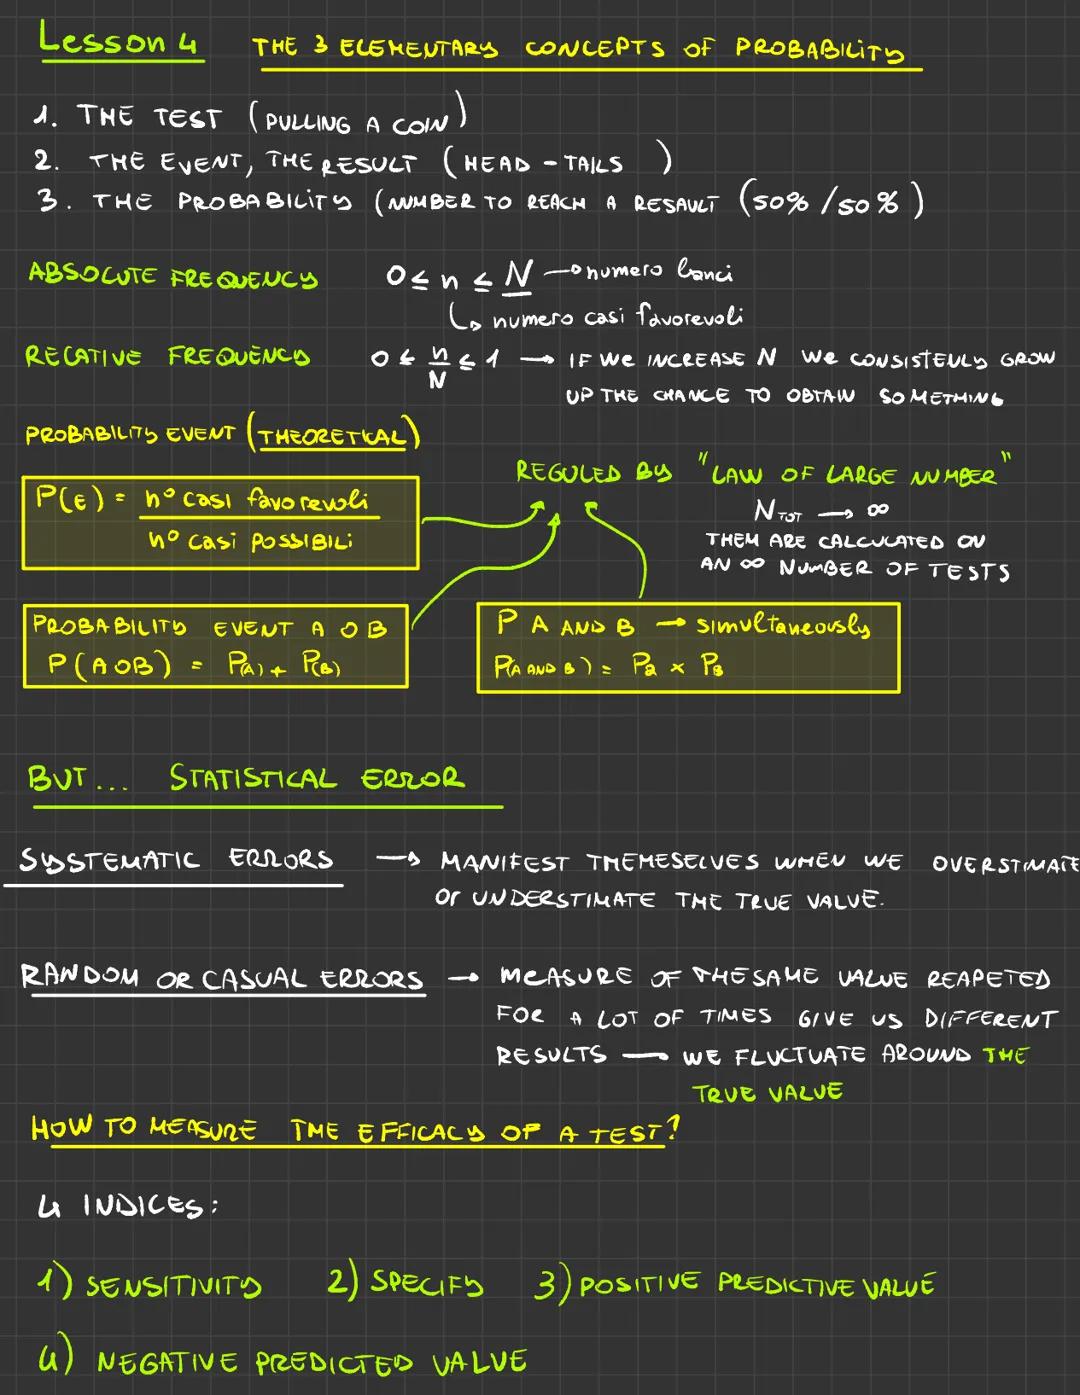 Lesson 4 THE 3 ELEMENTARY CONCEPTS OF PROBABILITY
1. THE TEST (PULLING A COIN)
2. THE EVENT, THE RESULT (HEAD - TAILS )
3. THE PROBABILITY (NUMBER TO REACH A RESAULT (50% /50%)
ABSOLUTE FREQUENCY 0 ≤ n ≤ N → numero lanci
↳ numero casi favorevoli
RELATIVE FREQUENCY 0 ≤ n/N ≤ 1 → IF WE INCREASE N WE CONSISTENLY GROW
UP THE CHANCE TO OBTAIN SOMETHING
PROBABILITY EVENT (THEORETICAL)
P(E) = n° casi favorevoli
n° casi POSSIBILI
REGULED BY "LAW OF LARGE NUMBER"
N TOT → ∞
THEM ARE CALCULATED ON
AN ∞ NUMBER OF TESTS
PROBABILITY EVENT A O B
P(A O B) = P(A) + P(B)
P A AND B → simultaneously
P(A AND B) = Pa × PB
BUT... STATISTICAL ERROR
SYSTEMATIC ERRORS → MANIFEST THEMESELVES WHEN WE OVERSTIMATE
Or UNDERSTIMATE THE TRUE VALUE.
RANDOM OR CASUAL ERRORS → MEASURE OF THE SAME VALUE REAPETED
FOR A LOT OF TIMES GIVE US DIFFERENT
RESULTS → WE FLUCTUATE AROUND THE
TRUE VALUE
HOW TO MEASURE THE EFFICACY OF A TEST?
4 INDICES:
1) SENSITIVITY 2) SPECIFY 3) POSITIVE PREDICTIVE VALUE
4) NEGATIVE PREDICTED VALUE